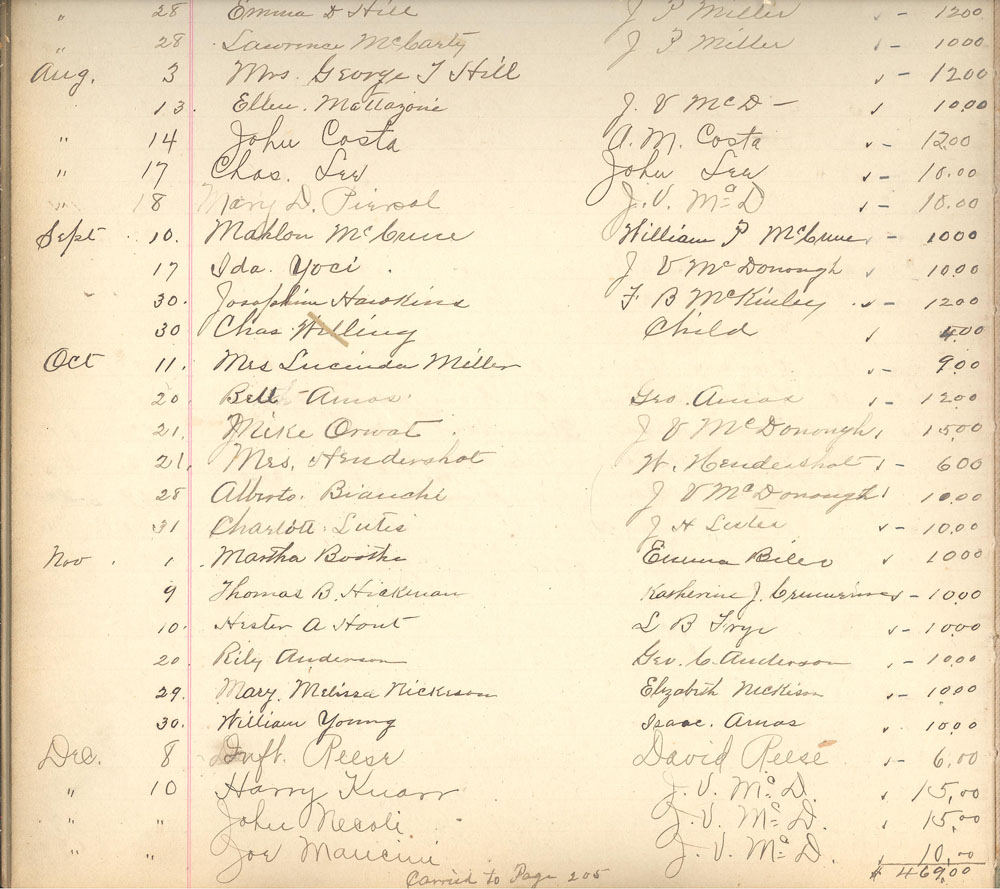 " 28 Emma D Hill J P Miller 12 00
" 28 Lawrence McCarty J P Miller 10 00
Aug. 3 Mrs. George T Hill 12 00
13. Ellen Mattazoni J. V McD — 10 00
" 14 John Costa A. M. Costa 12 00
" 17 Chas. Lee John Lee 10.00
" 18 Mary D. Piersol J. V. McD 10.00
Sept 10. Mahlon McCrure William P McCruer 10 00
17 Ida. Yoci. J V McDonough 10 00
30. Josephine Hawkins F B McKinley 12 00
30 Chas Willing Child 4.00
Oct 11. Mrs Lucinda Miller 9 00
20. Bell Amos. Geo. Amos 12 00
21. Mike Orwat. J V McDonough 15 00
21. Mrs. Hendershot W. Hendershot 6 00
28 Alberto. Bianchi J V McDonough 10.00
31 Charlott J H 10.00
Nov. 1 Martha Booth Emma 10 00
9 Thomas B. Hickman Katherine J. 10 00
10. Hester A Hout L B Frye 10 00
20. Rily Anderson Geo. C. Anderson 10 00
29. Mary. Melissa Nickeson Elizabeth Nickison 10 00
30. William Young Isaac. Amos 10 00
Dec. 8 Inft. Reese David Reese 6.00
" 10 Harry Knarr J. V. McD. 15.00
" " John Necoli. J. V. McD. 15.00
" " Joe Mancini J. V. McD. 10.00
Carried to Page 205 $ 469.00